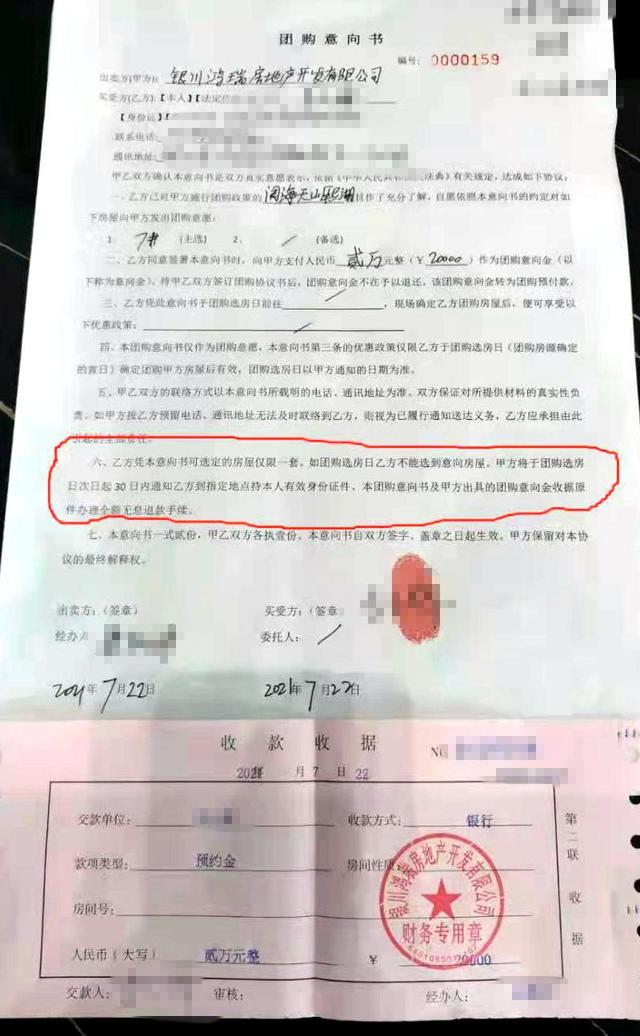 团购意向书
编号：0000159
出卖方(甲方)：银川鸿瑞房地产开发有限公司
买受方(乙方)：【本人】【法定代
【身份证】【
联系电话：
通讯地址：
甲乙双方确认本意向书是双方真实意愿表示，依据《中华人民共和国民法典》有关规定，达成如下协议：
一、乙方已对甲方施行团购政策的阅海天山熙湖项目作了充分了解，自愿依照本意向书的约定对如
下房屋向甲方发出团购意愿：
1 7# (主选) 2、 / (备选)
二、乙方同意签署本意向书时，向甲方支付人民币 贰万 元整（￥20000）作为团购意向金（以
下称为意向金），待甲乙双方签订团购协议书后，团购意向金不在予以退还，该团购意向金转为团购预付款。
三、乙方凭此意向书于团购选房日前往 / ，现场确定乙方团购房屋后，便可享受以
下优惠政策： /
四、本团购意向书仅作为团购意愿，本意向书第三条的优惠政策仅限乙方于团购选房日（团购房源确定
的首日）确定团购甲方房屋后有效，团购选房日以甲方通知的日期为准。
五、甲乙双方的联络方式以本意向书所载明的电话、通讯地址为准，双方保证对所提供材料的真实性负
责。如甲方按乙方预留电话、通讯地址无法及时联络到乙方，则视为已履行通知送达义务，乙方应承担由此
引起的全部责任。
六、乙方凭本意向书可选定的房屋仅限一套。如团购选房日乙方不能选到意向房屋。甲方将于团购选房
日次日起30日内通知乙方到指定地点持本人有效身份证件、本团购意向书及甲方出具的团购意向金收据原
件办理全额无息退款手续。
七、本意向书一式贰份，甲乙双方各执壹份。本意向书自双方签字、盖章之日起生效。甲方保留对本协
议的最终解释权。
出卖方：（签章） 买受方：（签章）
经办 委托人： /
2021年7月22日 2021年7月22日
收款收据 NO
2021 月 7 日 22
交款单位： 收款方式： 银行
款项类型： 预约金 房间性质
房间号：
人民币（大写） 贰万元整 ￥ 20000
交款人： 审核： 经办人：
第二联 收据
银川鸿瑞房地产开发有限公司
财务专用章